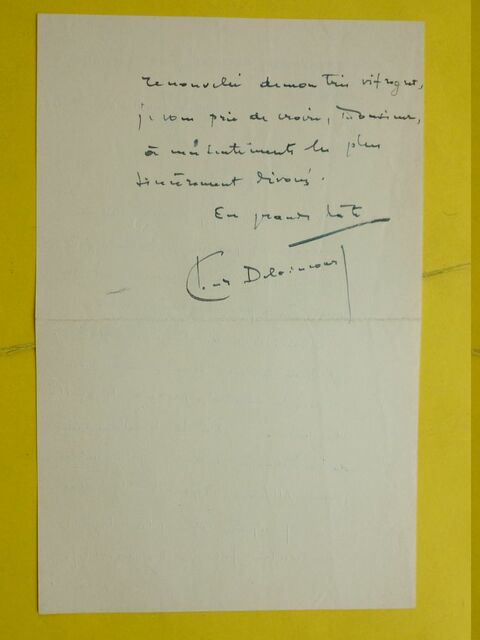 renouvelée de mon très vif regret,
je vous prie de croire, Monsieur,
à mes sentiments les plus
sincèrement dévoués.
En grande hâte
Delvincourt